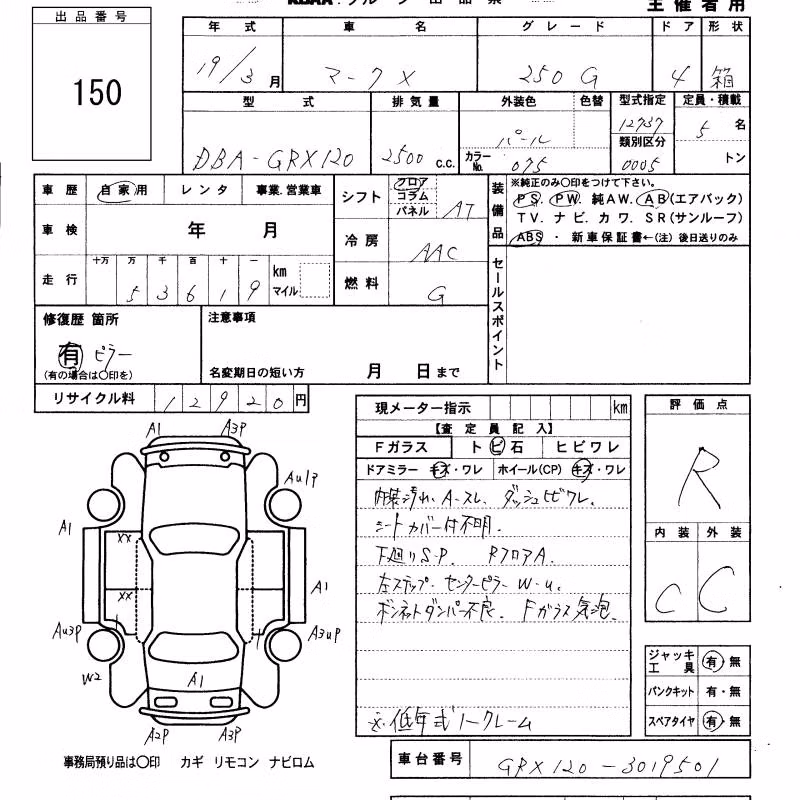 主催者用
出品番号
150
年式 車名 グレード ドア 形状
19/3月 マークX 250G 4 箱
型式 排気量 外装色 色替 型式指定 定員・積載
DBA-GRX120 2500c.c. パール 12737 5名
カラーNo. 075 類別区分 0005 トン
車歴 自家用 レンタ 事業.営業車
シフト フロア コラム パネル AT
装備品 ※純正のみ○印をつけて下さい。
PS. PW. 純AW. AB(エアバック)
TV. ナビ. カワ. SR(サンルーフ)
ABS ・ 新車保証書←(注) 後日送りのみ
車検 年 月
冷房 AAC
走行 十万 万 千 百 十 一
53619 km マイル
燃料 G
セールスポイント
修復歴 箇所 注意事項
有 ピラー
(有の場合は○印を) 名変期日の短い方 月 日まで
リサイクル料 12920円
現メーター指示 km
【査定員記入】
Fガラス トビ石 ヒビワレ
ドアミラー キズ・ワレ ホイール(CP) キズ・ワレ
内装汚れ、A-スレ、ダッシュヒビワレ、
シートカバー付不明.
下廻りS・P. RフロアA.
左ステップ・センターピラーW・u.
ボンネットダンパー不良. Fガラス気泡.
※低年式ノークレーム
評価点
R
内装 外装
C C
ジャッキ 工具 有・無
パンクキット 有・無
スペアタイヤ 有・無
A1 A3P
Au1P
A1
XX
XX
A1
Au3P
A3uP
W2
A1
A2P A3P
事務局預り品は○印 カギ リモコン ナビロム
車台番号 GRX120-3019501